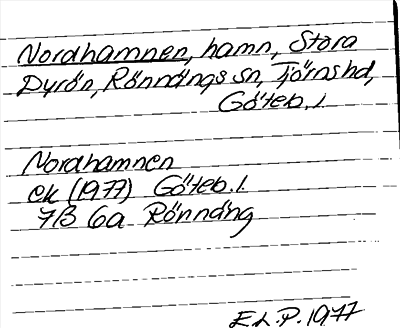 Nordhamnen, hamn, Stora
Dyrön, Rönnängs sn, Tjörns hd,
Göteb. l.
Nordhamnen
ek (1977) Göteb. l.
7B 6a Rönnäng
E.L.P. 1977